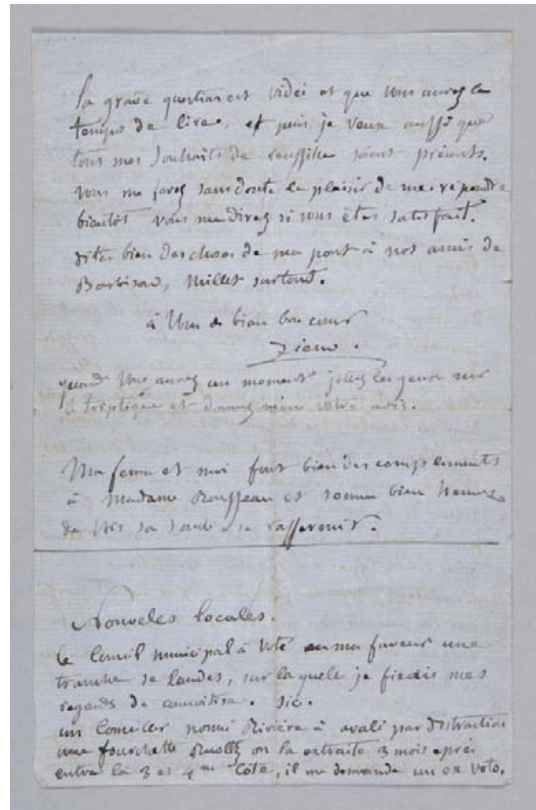 la grave question est vidée et que vous aurez le
temps de lire, et puis je veux aussi que
tous mes souhaits de réussite soient présents.
vous me ferez sans doute le plaisir de me répondre
bientôt vous me direz si vous êtes satisfait.
dites bien des choses de ma part à nos amis de
Barbison, Millet surtout.
à Vous de bien bon cœur
Ziem.
quand vous aurez un moment jettez les yeux sur
le triptique et donnez m'en votre avis.
Ma femme et moi font bien des compliments
à Madame Rousseau et somme bien heureux
de voir sa santé se raffermir.
Nouveles locales.
le Conseil municipal à voté en ma faveur une
tranche de landes, sur laquele je fixais mes
regards de convoitise. sic.
un Conseiller nommé Rivière à avalé par distraction
une fourchette Ruolz on la extraite 3 mois après
entre la 3 et 4me Cote, il me demande un ex voto.